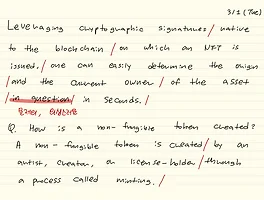 3/1 (Tue)
Leveraging cryptographic signatures / native
to the blockchain / on which an NFT is
issued, / one can easily determine the origin
/ and the current owner / of the asset
/ in question / in seconds. /
Q. How is a non-fungible token created?
A non-fungible token is created / by an
artist, creator, or license-holder / through
a process called minting. /